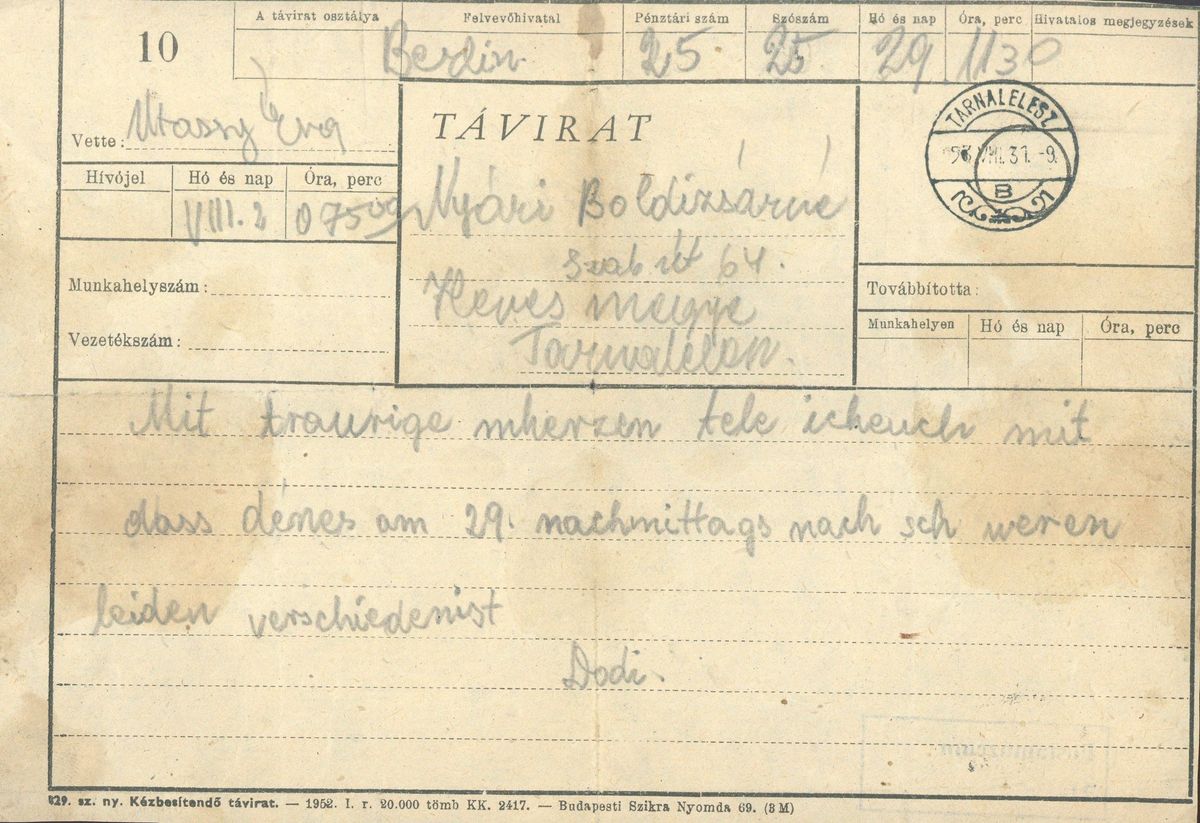 10
A távirat osztálya
Felvevőhivatal
Pénztári szám
Szószám
Hó és nap
Óra, perc
Hivatalos megjegyzések
Berlin
25
25
29
1130
Vette: Utassy Éva
Hívójel
Hó és nap
Óra, perc
VIII. 2
075
Munkahelyszám:
Vezetékszám:
TÁVIRAT
Nyári Boldizsárné
Szab út 64.
Heves megye
TARNALELESZ
VIII. 31. -9.
B
Továbbította:
Munkahelyen
Hó és nap
Óra, perc
Mit traurige mherzen tele icheuch mit
dass dénes am 29. nachmittags nach sch weren
leiden verschiedenist
Dodi.
829. sz. ny. Kézbesítendő távirat. — 1952. I. r. 20.000 tömb KK. 2417. — Budapesti Szikra Nyomda 69. (3 M)